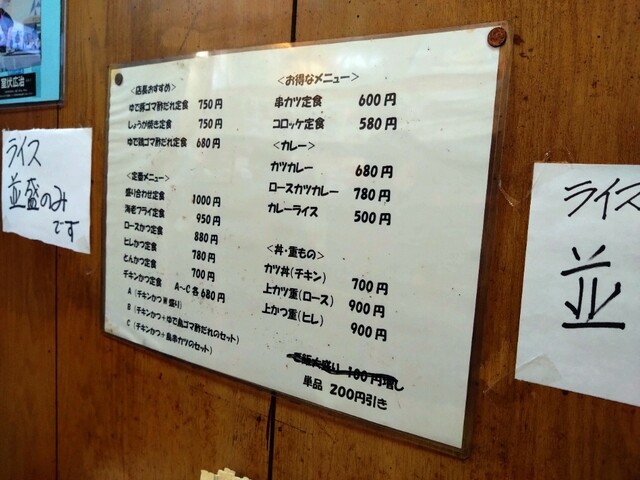 室伏広治
ライス
並盛のみ
です
<店長おすすめ>
ゆで豚ゴマ酢だれ定食 750円
しょうが焼き定食 750円
ゆで鶏ゴマ酢だれ定食 680円
<定番メニュー>
盛り合わせ定食 1000円
海老フライ定食 950円
ロースかつ定食 880円
ヒレかつ定食 780円
とんかつ定食 700円
チキンかつ定食 A〜C 各680円
A (チキンかつW盛り)
B (チキンかつ+ゆで鳥ゴマ酢だれのセット)
C (チキンかつ+鳥串カツのセット)
<お得なメニュー>
串カツ定食 600円
コロッケ定食 580円
<カレー>
カツカレー 680円
ロースカツカレー 780円
カレーライス 500円
<丼・重もの>
カツ丼(チキン) 700円
上カツ重(ロース) 900円
上かつ重(ヒレ) 900円
ご飯大盛り 100円増し
単品 200円引き
ライス
並